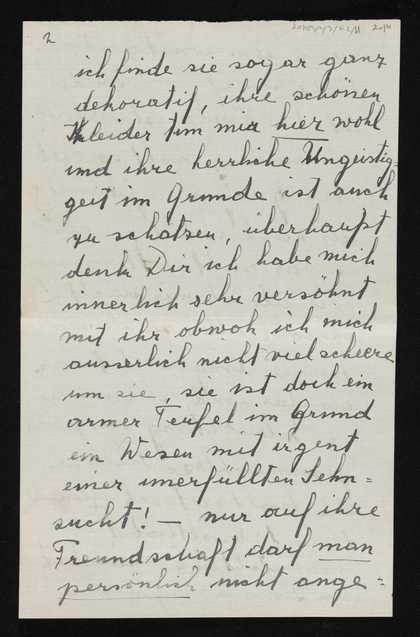 2
ich finde sie sogar ganz
dekoratif, ihre schönen
Kleider tun mir hier wohl
und ihre herrliche Ungeistig-
geit im Grunde ist auch
zu schätzen, überhaupt
denk Dir ich habe mich
innerlich sehr versöhnt
mit ihr obwoh ich mich
ausserlich nicht viel scheere
um sie, sie ist doch ein
armer Teufel im Grund
ein Wesen mit irgent
einer unerfüllten Sehn=
sucht! — nur auf ihre
Freundschaft darf man
persönlich nicht ange=